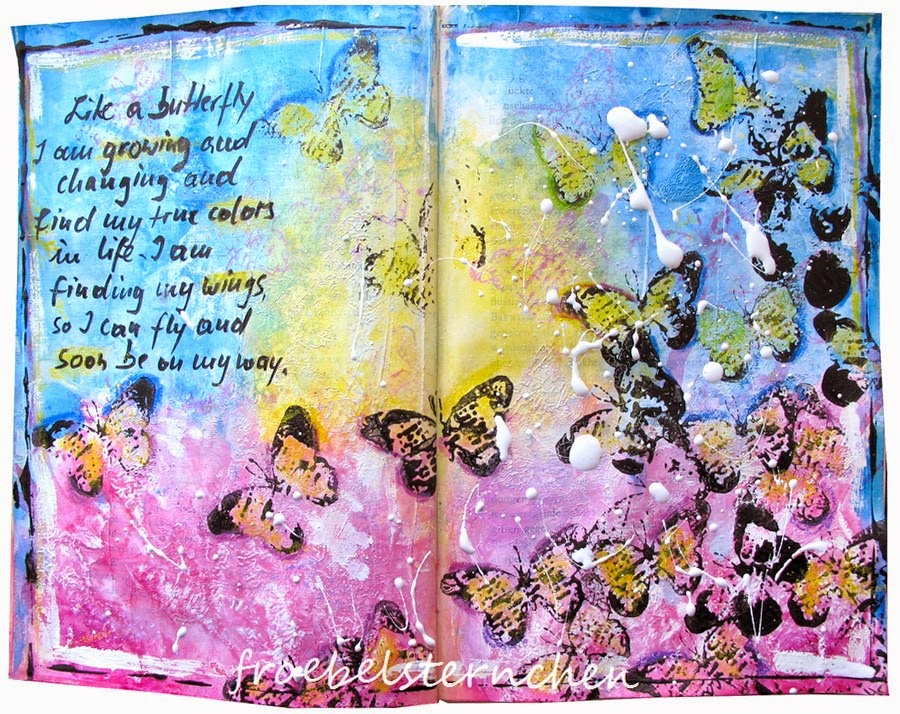 Like a butterfly
I am growing and
changing and
find my true colors
in life. I am
finding my wings,
so I can fly and
soon be on my way.
froebelsternchen